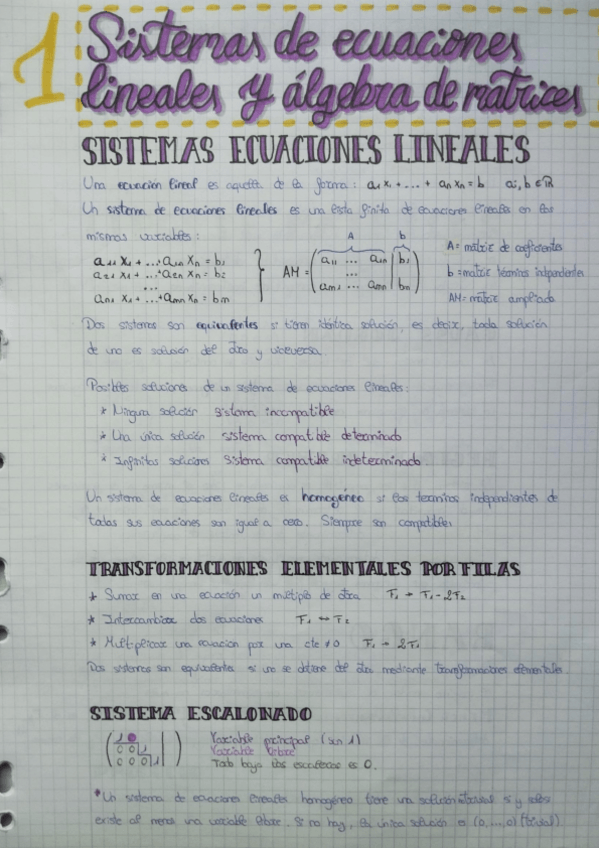 1
Sistemas de ecuaciones
lineales y álgebra de matrices
SISTEMAS ECUACIONES LINEALES
Una ecuación lineal es aquella de la forma: a₁x₁+...+ aₙxₙ = b aᵢ, b ∈ ℝ
Un sistema de ecuaciones lineales es una lista finita de ecuaciones lineales en las
mismas variables:
A b
a₁₁ x₁ + ... + a₁ₙ xₙ = b₁
a₂₁ x₁ + ... + a₂ₙ xₙ = b₂
...
aₘ₁ x₁ + ... + aₘₙ xₙ = bₘ
AM = ( a₁₁ ... a₁ₙ | b₁
... ... ...
aₘ₁ ... aₘₙ | bₘ )
A = matriz de coeficientes
b = matriz términos independientes
AM = matriz ampliada
Dos sistemas son equivalentes si tienen idéntica solución, es decir, toda solución
de uno es solución del otro y viceversa.
Posibles soluciones de un sistema de ecuaciones lineales:
* Ninguna solución sistema incompatible
* Una única solución sistema compatible determinado
* Infinitas soluciones sistema compatible indeterminado.
Un sistema de ecuaciones lineales es homogéneo si los terminos independientes de
todas sus ecuaciones son igual a cero. Siempre son compatibles
TRANSFORMACIONES ELEMENTALES POR FILAS
* Sumar en una ecuación un múltiplo de otra. F₁ → F₁ - 2F₂
* Intercambiar dos ecuaciones F₁ ↔ F₂
* Multiplicar una ecuación por una cte ≠ 0 F₁ → 2F₁
Dos sistemas son equivalentes si uno se obtiene del otro mediante transformaciones elementales.
SISTEMA ESCALONADO
1
0 0 1
0 0 0 1
Variable principal (sin 1)
Variable libre
Todo bajo las escaleras es 0.
*Un sistema de ecuaciones lineales homogéneo tiene una solución si y solo si
existe al menos una variable libre. Si no hay, la única solución es (0,...,0) (trivial)